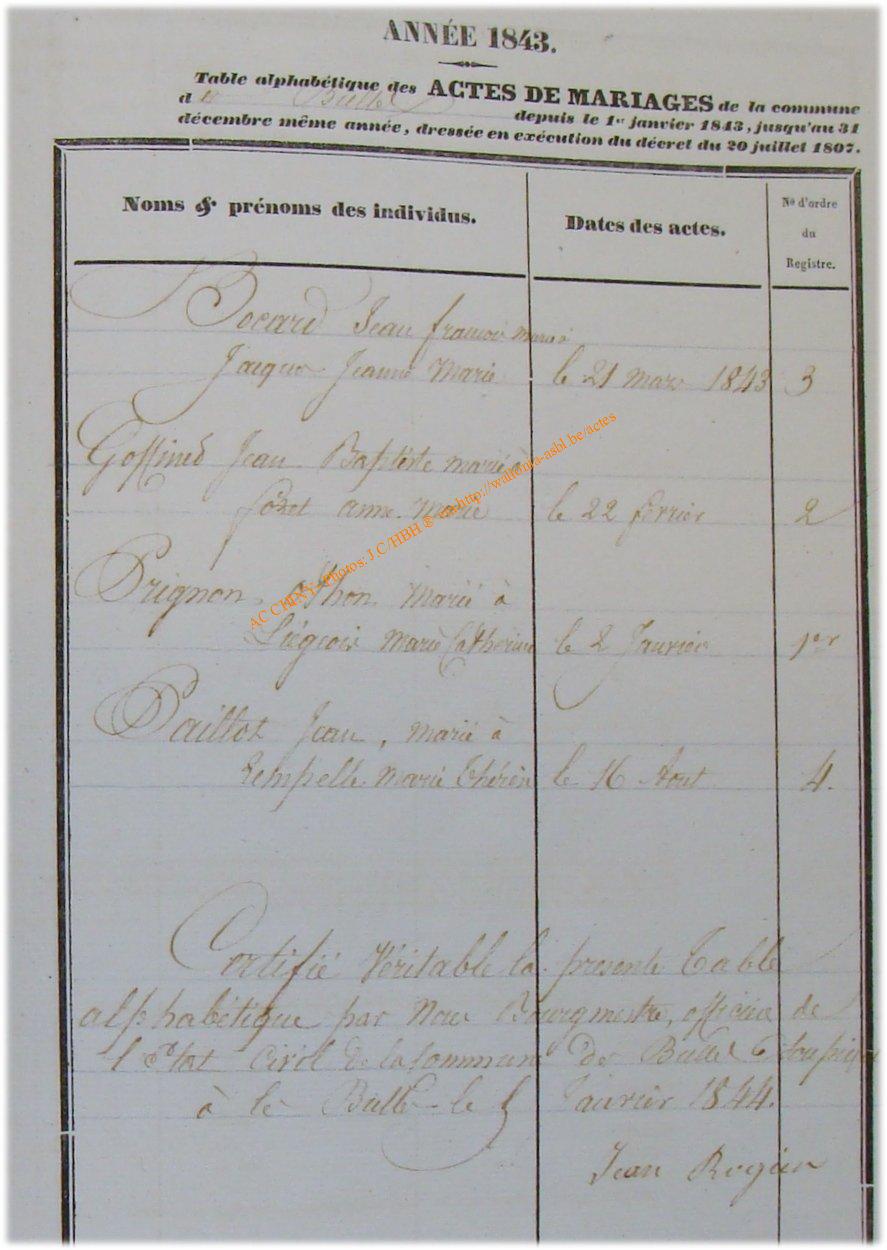 ANNÉE 1843.
Table alphabétique des ACTES DE MARIAGES de la commune
d
depuis le 1er janvier 1843, jusqu'au 31
décembre même année, dressée en exécution du décret du 20 juillet 1807.
Noms & prénoms des individus.
Dates des actes.
No d'ordre
du
Registre.
Bocard Jean françois marié à
Jacques Jeanne Marie le 21 mars 1843 3
Goffined Jean Baptiste marié à
anne marie le 22 février 2
Prignon, Marié à
Liégeois Marie Catherine le 2 Janvier 1er
Paillot Jean, marié à
marie thérèse le 16 Aout 4.
Certifié Véritable la presente table
alphabétique par Nous Bourgmestre, officier de
l'Etat civil de la Commune de
à le 5 Janvier 1844.
Jean
AC CHINY - Photos: J.C/HBH ® sur http://wallonia-asbl.be/actes